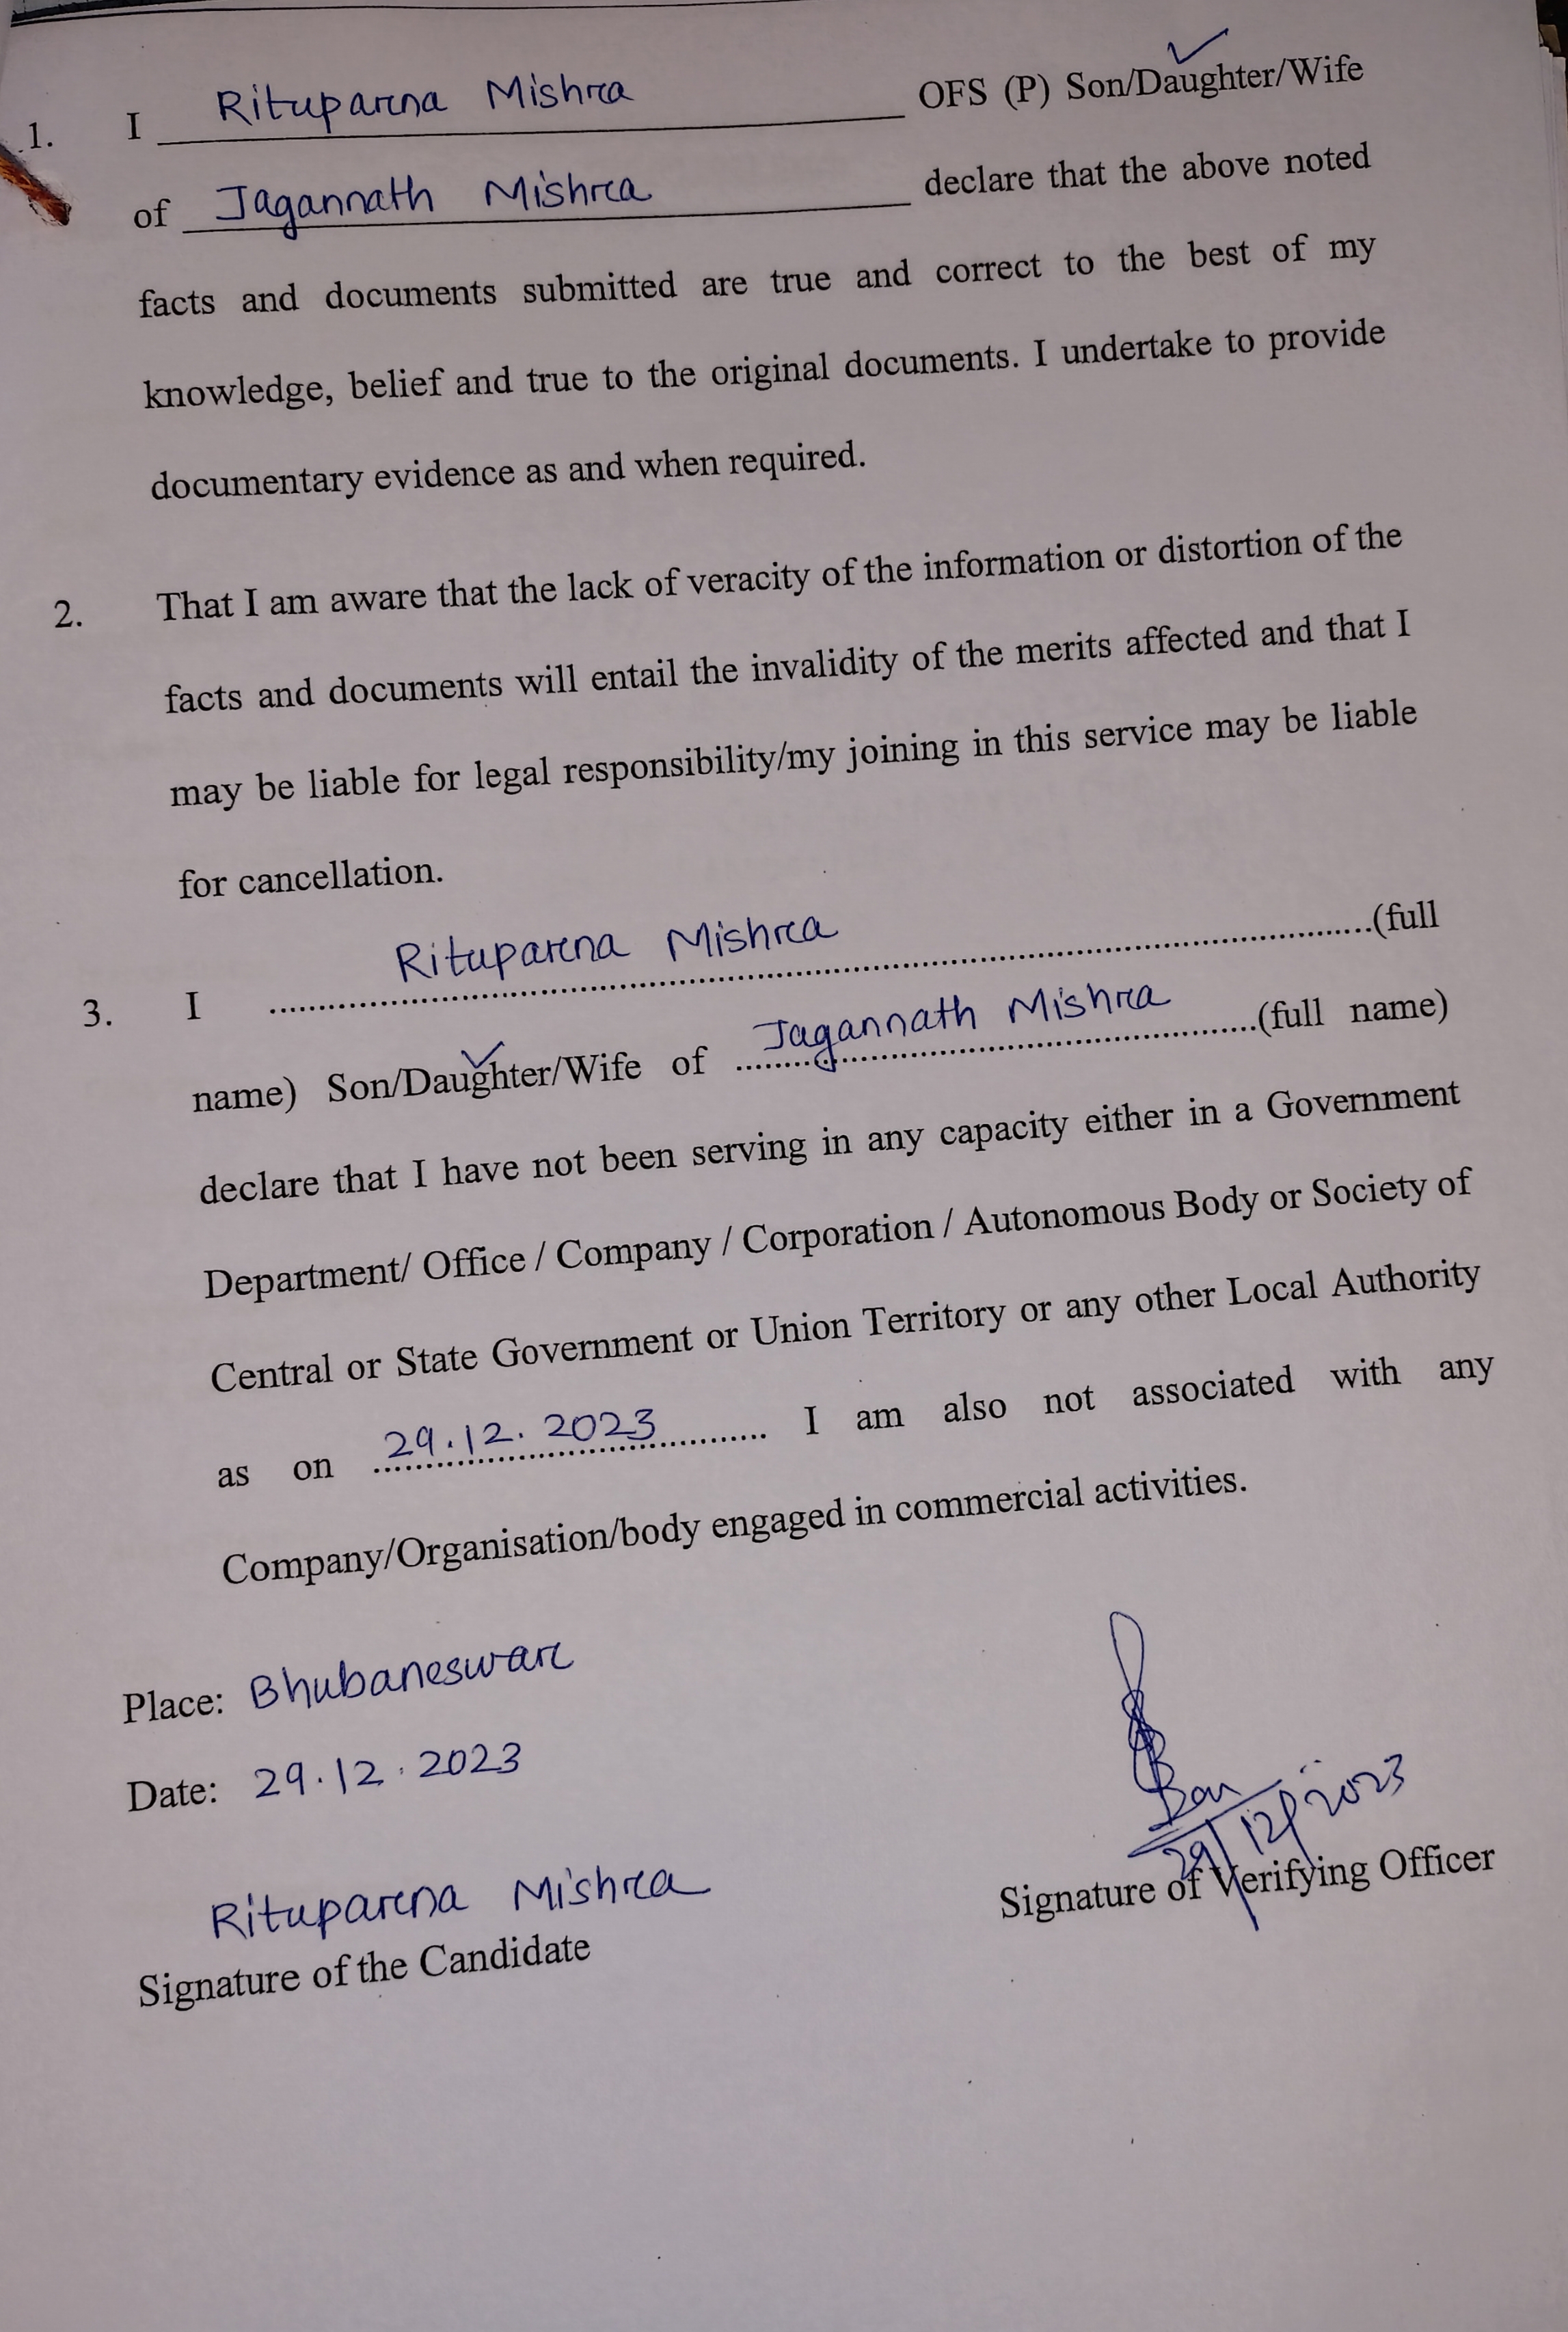 1. I Rituparna Mishra OFS (P) Son/Daughter/Wife
of Jagannath Mishra declare that the above noted
facts and documents submitted are true and correct to the best of my
knowledge, belief and true to the original documents. I undertake to provide
documentary evidence as and when required.
2. That I am aware that the lack of veracity of the information or distortion of the
facts and documents will entail the invalidity of the merits affected and that I
may be liable for legal responsibility/my joining in this service may be liable
for cancellation.
3. I Rituparna Mishra (full
name) Son/Daughter/Wife of Jagannath Mishra (full name)
declare that I have not been serving in any capacity either in a Government
Department/ Office / Company / Corporation / Autonomous Body or Society of
Central or State Government or Union Territory or any other Local Authority
as on 29.12.2023 I am also not associated with any
Company/Organisation/body engaged in commercial activities.
Place: Bhubaneswar
Date: 29.12.2023
29/12/2023
Rituparna Mishra
Signature of Verifying Officer
Signature of the Candidate